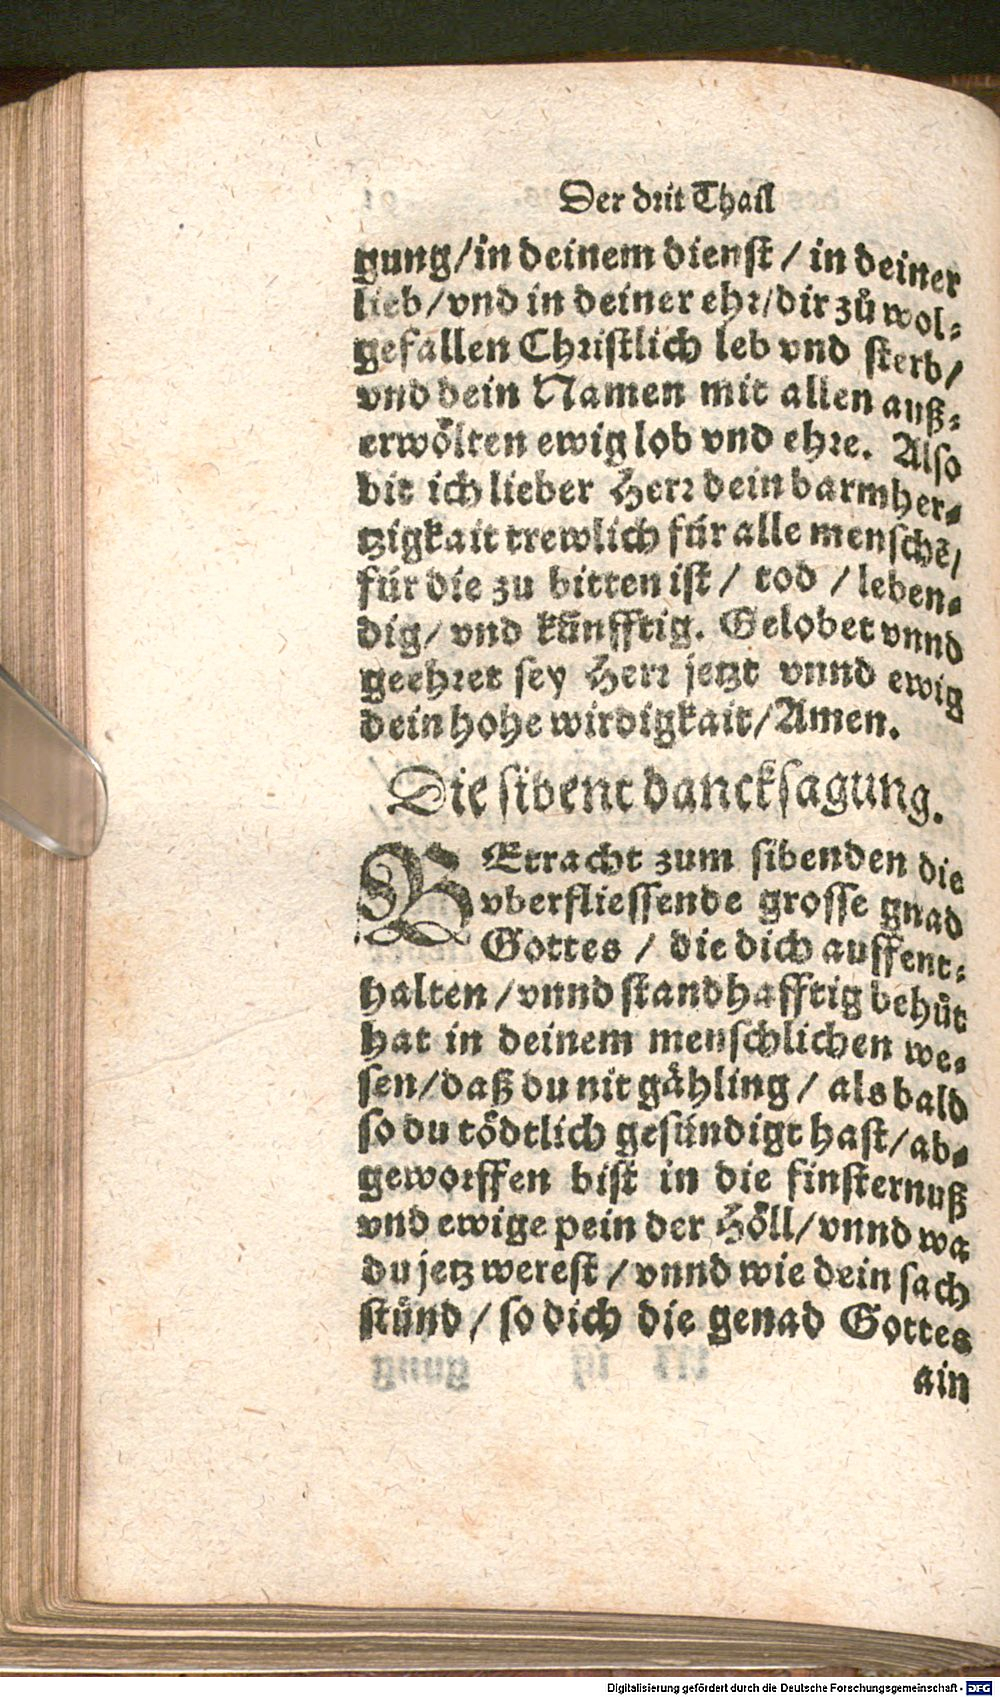 Der drit Thail
gung/in deinem dienst / in deiner
lieb/vnd in deiner ehr/dir zů wol-
gefallen Christlich leb vnd sterb/
vnd dein Namen mit allen auß-
erwölten ewig lob vnd ehre. Also
bit ich lieber Herr dein barmher-
tzigkait trewlich für alle menschẽ/
für die zu bitten ist / tod / leben-
dig/ vnd künfftig. Gelobet vnnd
geehret sey Herr jetzt vnnd ewig
dein hohe wirdigkait/Amen.
Die sibent dancksagung.
BEtracht zum sibenden die
vberfliessende grosse gnad
Gottes / die dich auffent-
halten /vnnd standhafftig behůt
hat in deinem menschlichen we-
sen/daß du nit gähling / als bald
so du tödtlich gesündigt hast/ab-
geworffen bist in die finsternuß
vnd ewige pein der Höll/vnnd wa
du jetz werest /vnnd wie dein sach
stünd / so dich die genad Gottes
ain
Digitalisierung gefördert durch die Deutsche Forschungsgemeinschaft - DFG